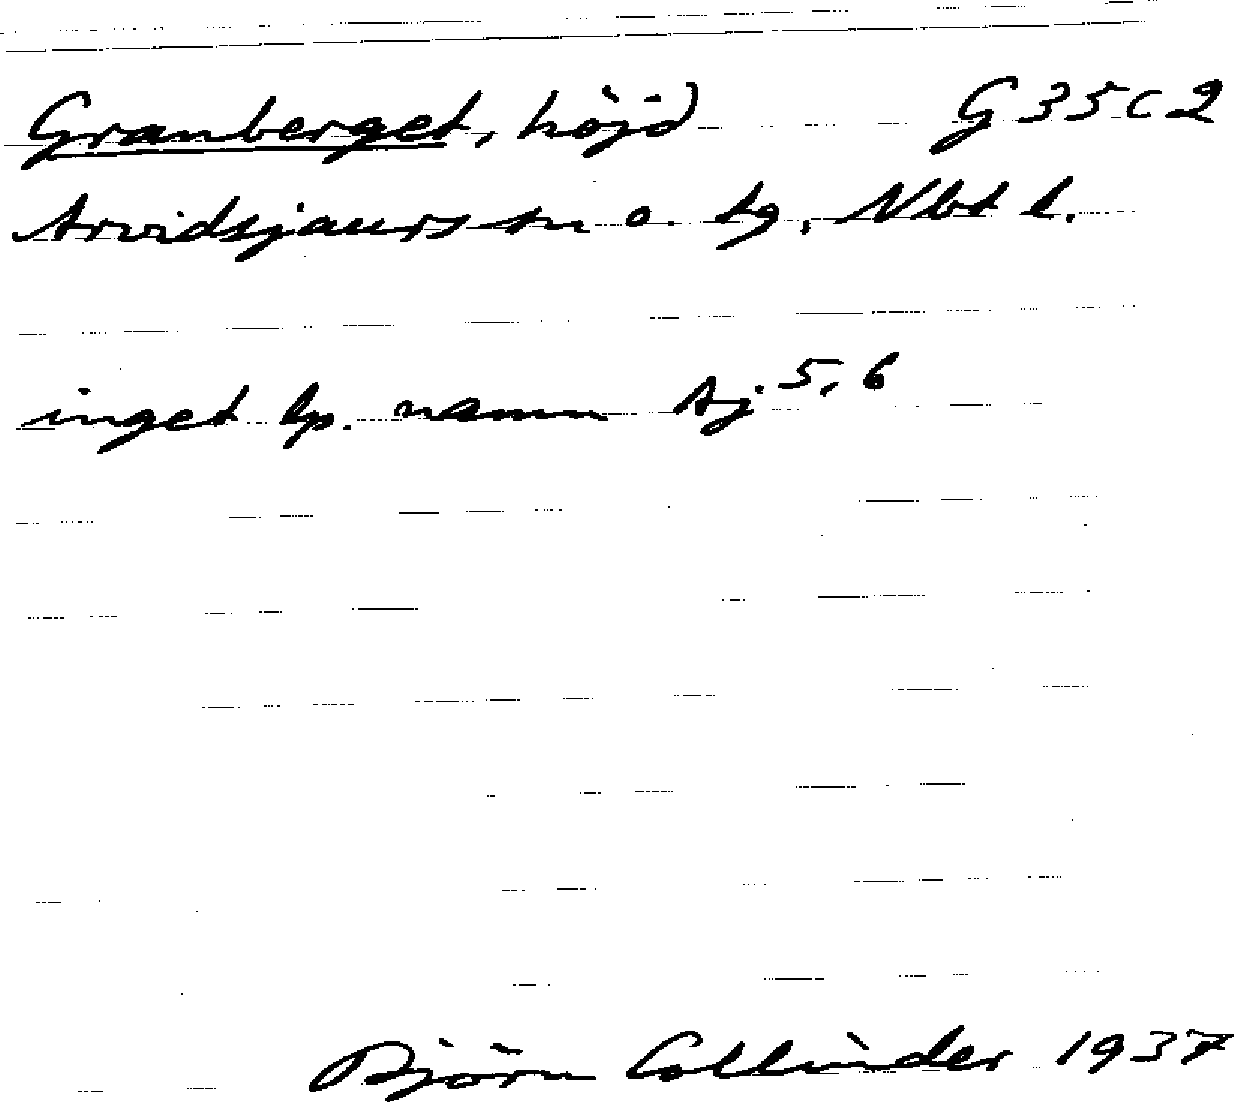 Granberget, höjd G 35 c 2
Arvidsjaurs sn o. tg, Nbt l.
inget lp. namn Aj. 5, 6
Björn Collinder 1937